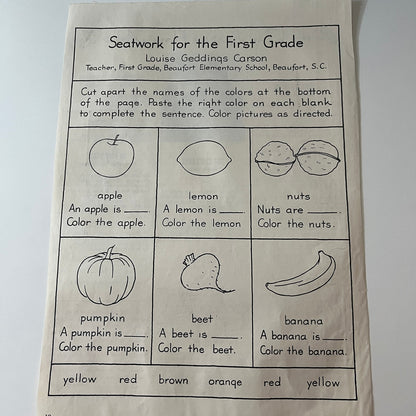 Seatwork for the First Grade
Louise Geddings Carson
Teacher, First Grade, Beaufort Elementary School, Beaufort, S.C.
Cut apart the names of the colors at the bottom
of the page. Paste the right color on each blank
to complete the sentence. Color pictures as directed.
apple
An apple is ____.
Color the apple.
lemon
A lemon is ____.
Color the lemon
nuts
Nuts are ____.
Color the nuts.
pumpkin
A pumpkin is ____.
Color the pumpkin.
beet
A beet is ____.
Color the beet.
banana
A banana is ____.
Color the banana.
yellow red brown orange red yellow